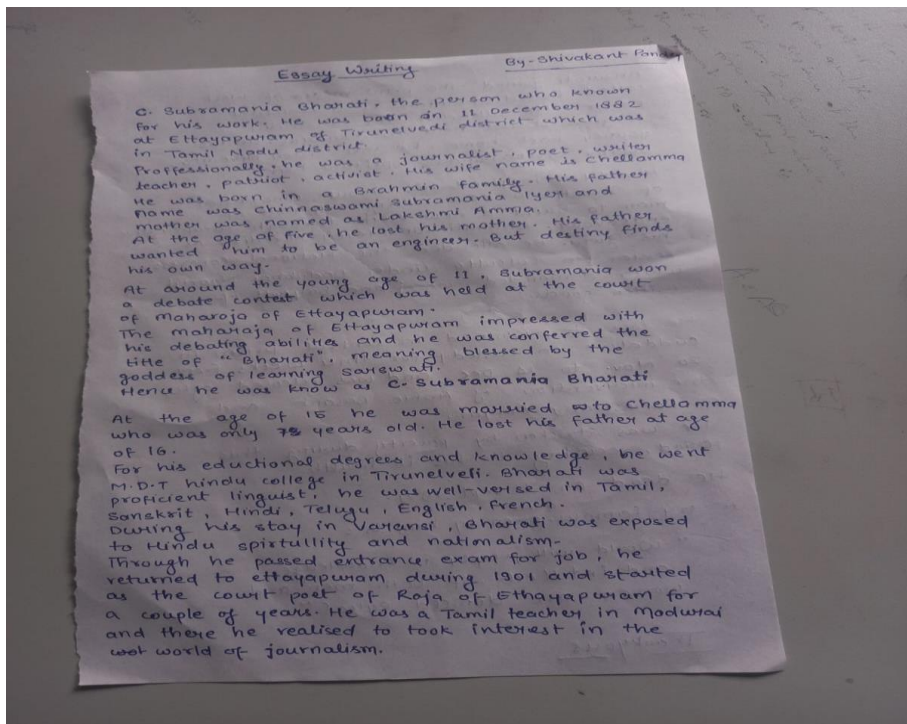 Essay Writing
By - Shivakant Pandey
C. Subramania Bharati, the person who known
for his work. He was born on 11 December 1882
at Ettayapuram of Tirunelvedi district which was
in Tamil Nadu district
Proffessionally, he was a journalist, poet, writer
teacher, patriot, activist. His wife name is Chellamma
He was born in a Brahmin family. His father
name was Chinnaswami Subramania Iyer and
mother was named as Lakshmi Amma.
At the age of five, he lost his mother. His father
wanted him to be an engineer. But destiny finds
his own way.
At around the young age of 11, Subramania won
a debate contest which was held at the court
of maharaja of Ettayapuram.
The maharaja of Ettayapuram impressed with
his debating abilities and he was conferred the
title of "Bharati", meaning blessed by the
goddess of learning Sarswati.
Hence he was know as C. Subramania Bharati
At the age of 15 he was married to Chellamma
who was only years old. He lost his father at age
of 16.
For his eductional degrees and knowledge, he went
M.D.T hindu college in Tirunelveli. Bharati was
proficient linguist, he was well-versed in Tamil,
Sanskrit, Hindi, Telugu, English, French.
During his stay in Varansi, Bharati was exposed
to Hindu spirtullity and nationalism.
Through he passed entrance exam for job, he
returned to ettayapuram during 1901 and started
as the court poet of Raja of Ethayapuram for
a couple of years. He was a Tamil teacher in Madurai
and there he realised to took interest in the
world of journalism.